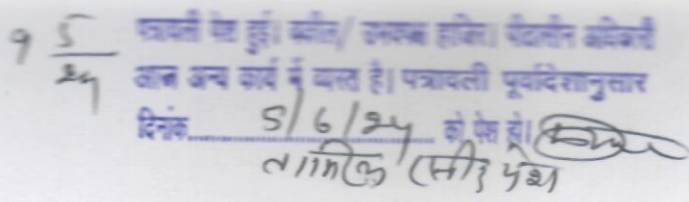 9 5/24 पत्रावली पेश हुई। वकील/ उभयपक्ष हाजिर। पीठासीन अधिकारी
आज अन्य कार्य में व्यस्त है। पत्रावली पूर्वादेशानुसार
दिनांक 5/6/24 को पेश हो।
तामिल रसीद पेश